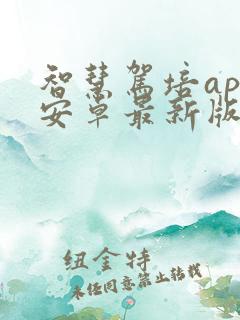 智慧驾培ap
安卓最新版
纽金特
未经同意禁止转载